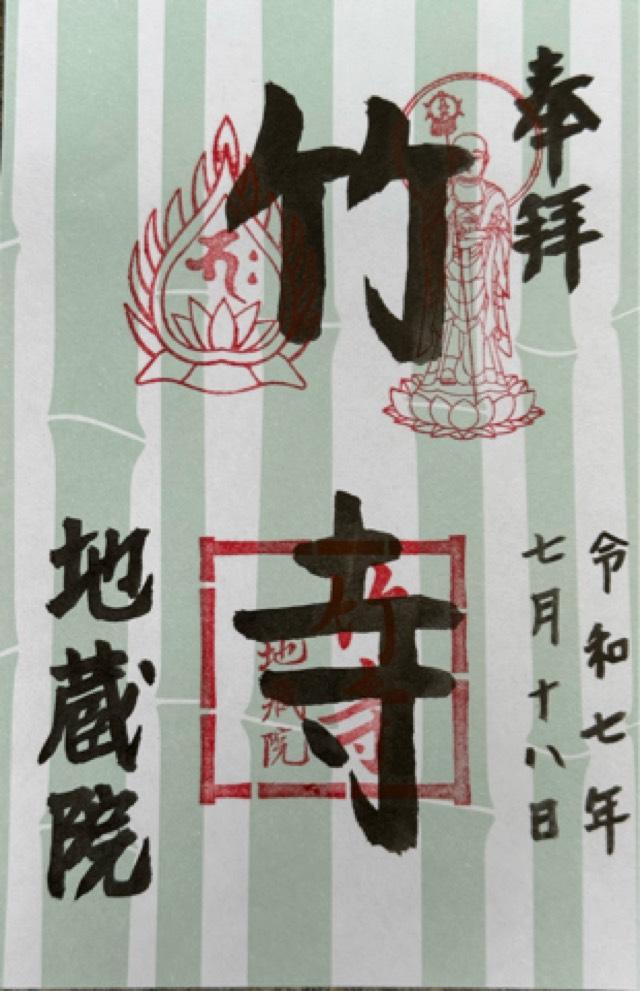 奉拝
令和七年
七月十八日
竹寺
竹寺
地蔵院
地蔵院